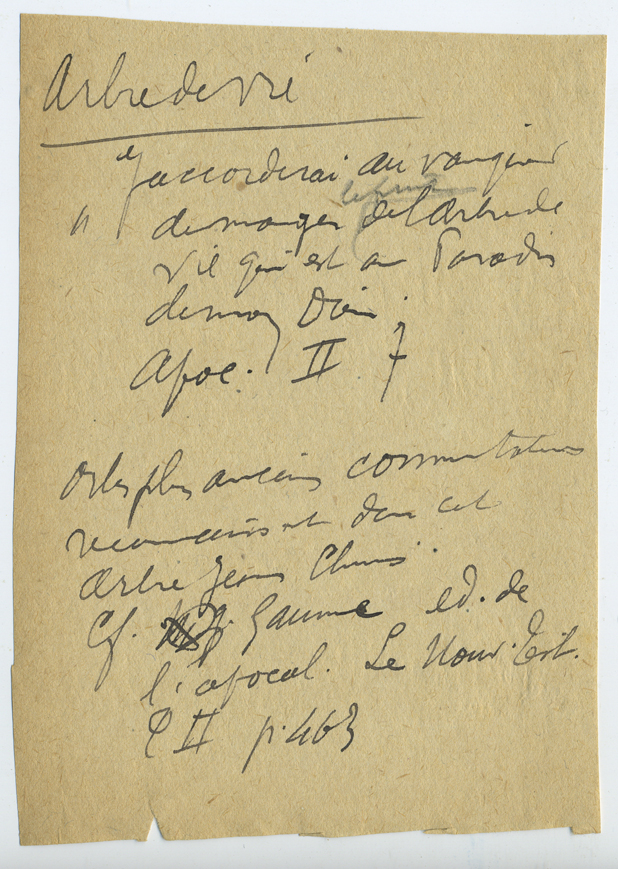 Arbre de vie
"J'accorderai au vainqueur
" de manger de l'arbre de
vie qui est au Paradis
de mon Dieu.
Apoc. II 7
Or les plus anciens commentateurs
reconnaissent dans cet
arbre Jésus Christ.
Cf. Gaume ed. de
l'apocal. Le Nouv. Test.
T II p. 463